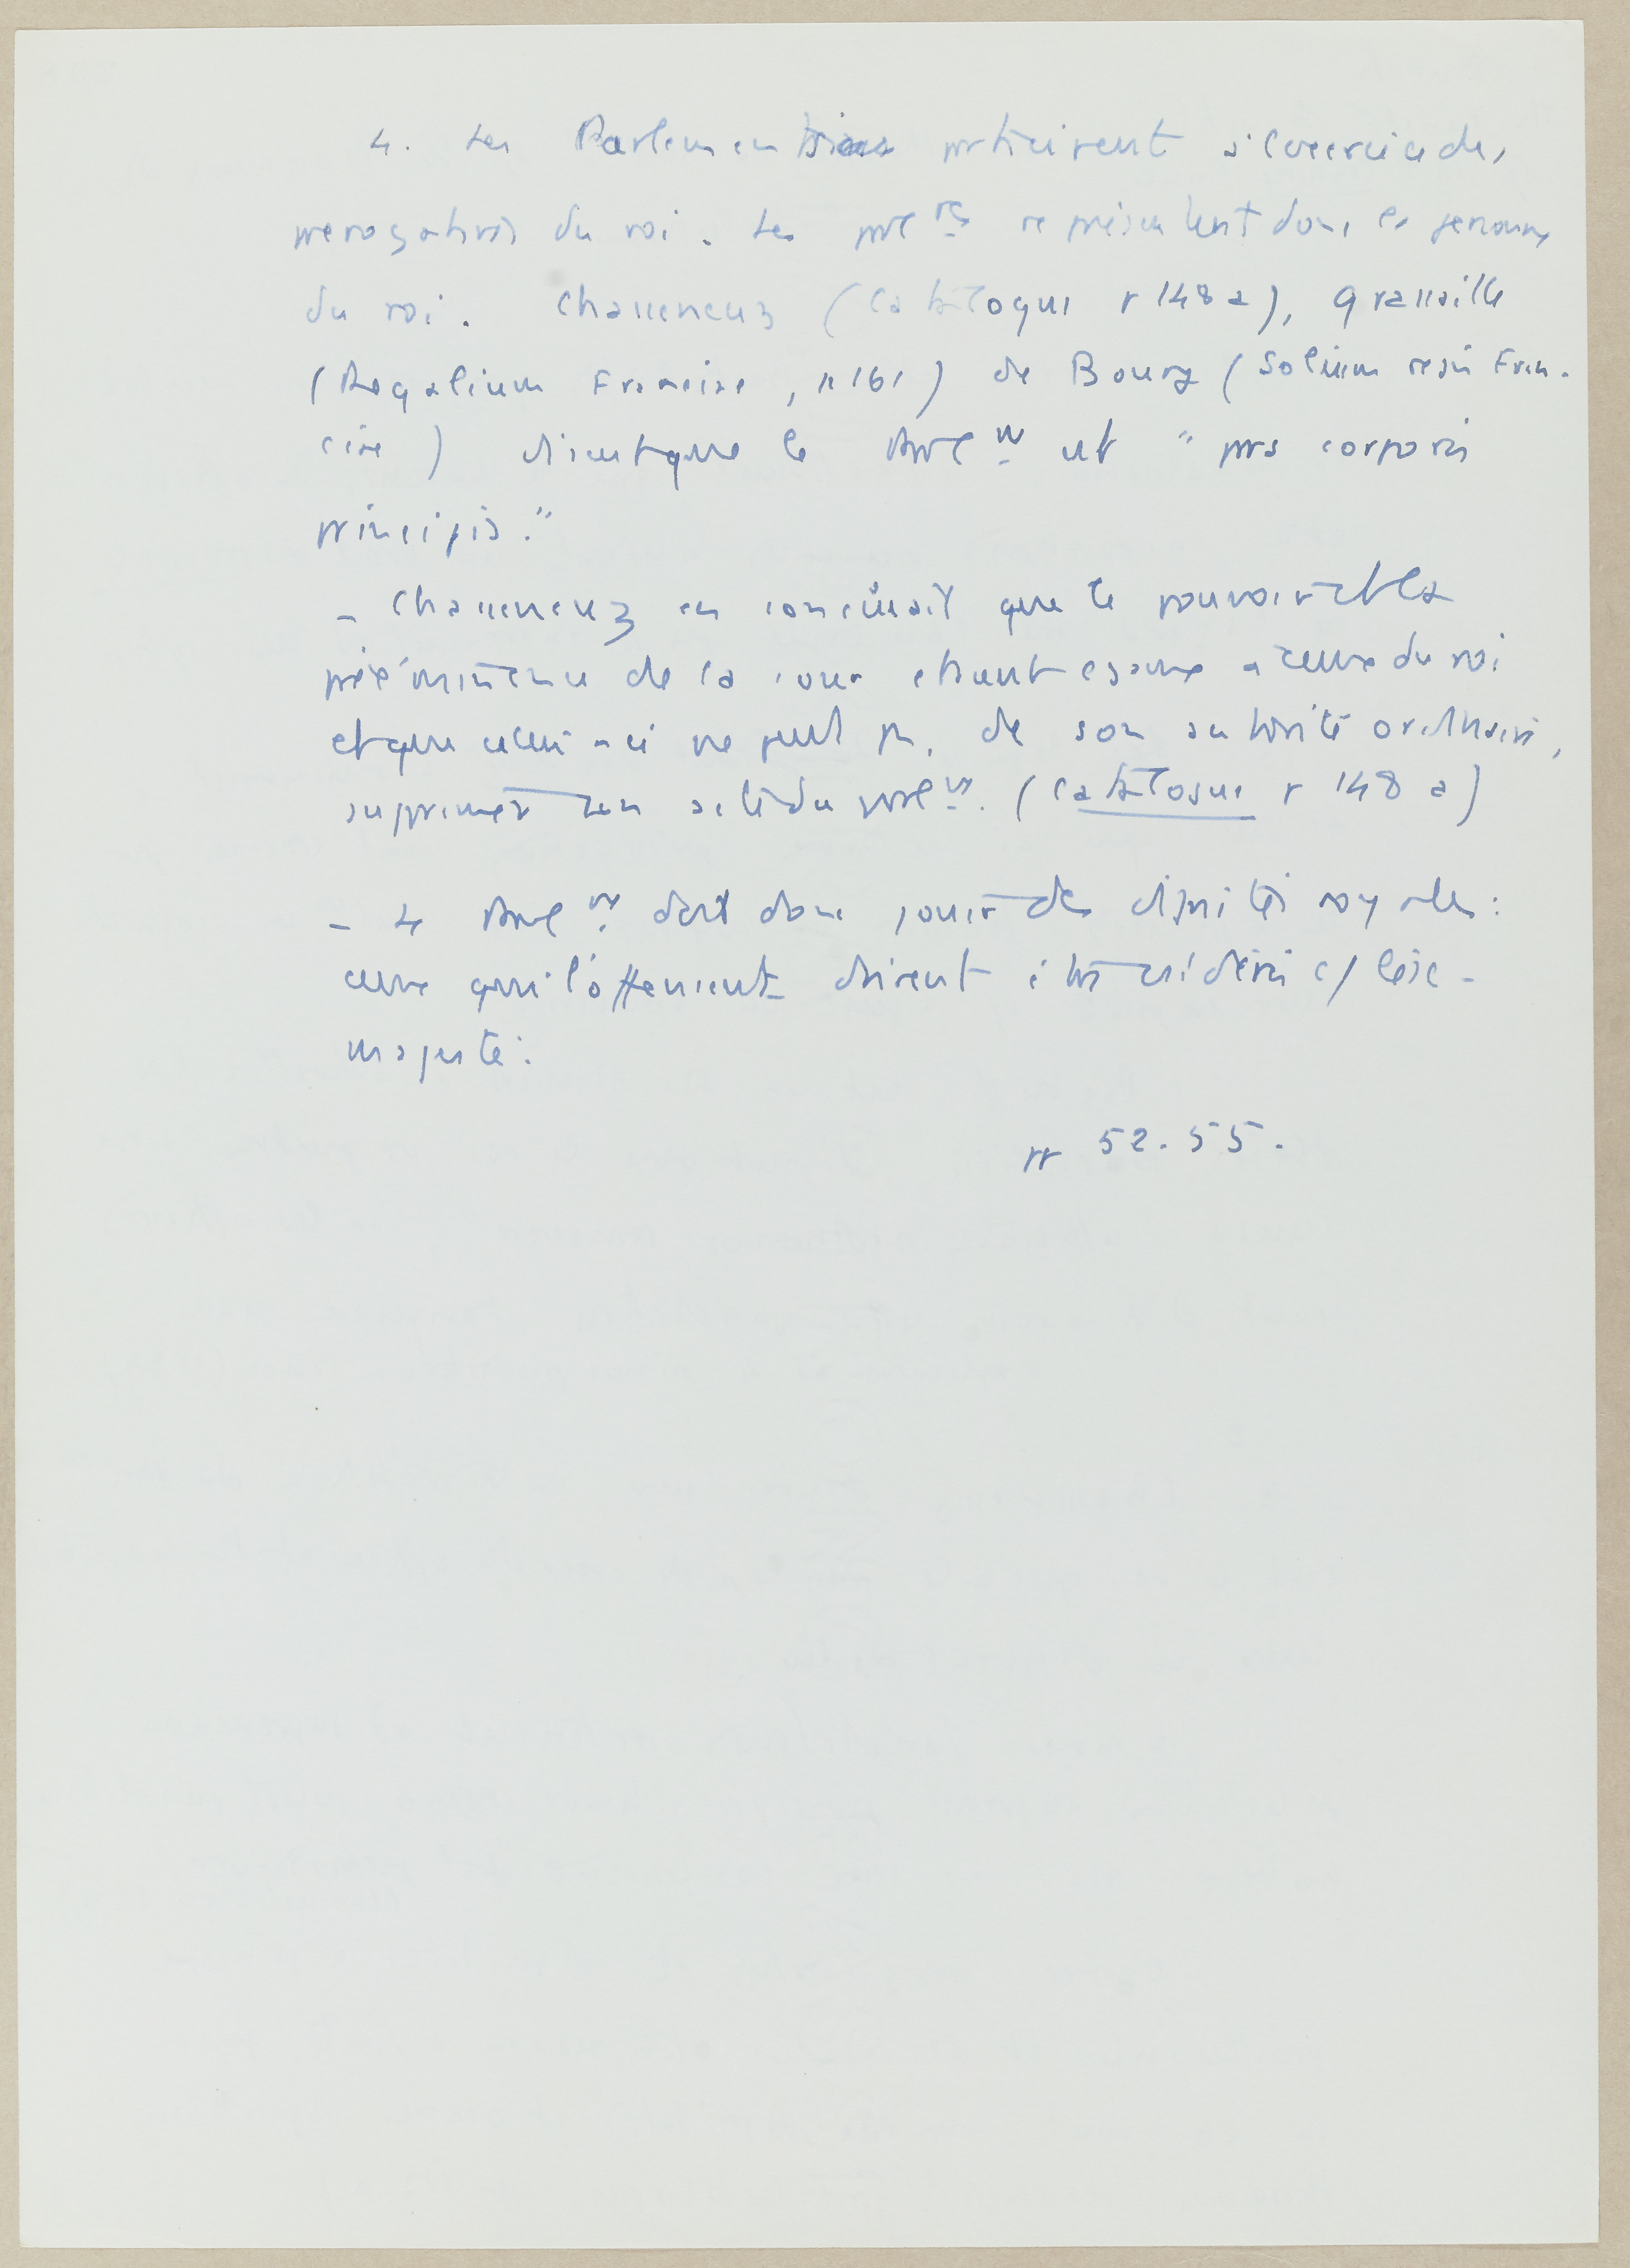 4. Les Parlementaires participent à l'exercice des
prerogatives du roi. Les parlts représentent donc la personne
du roi. Chasseneuz (Catalogus p 148 a), Grassaille
(Regalium Franciae, p 161) de Bourg (Solium regis Fran-
ciae) disent que le Parlt est "pars corporis
principis."
- Chasseneuz en concluait que le pouvoir et la
prééminence de la cour étaient égaux à ceux du roi
et que celui-ci ne peut pas, de son autorité ordinaire,
supprimer un acte du parlt. (Catalogus p 148 a)
- Le Parlt doit donc jouir des dignités royales:
ceux qui l'offensent doivent être considérés c/ lèse-
majesté.
pp 52.55.